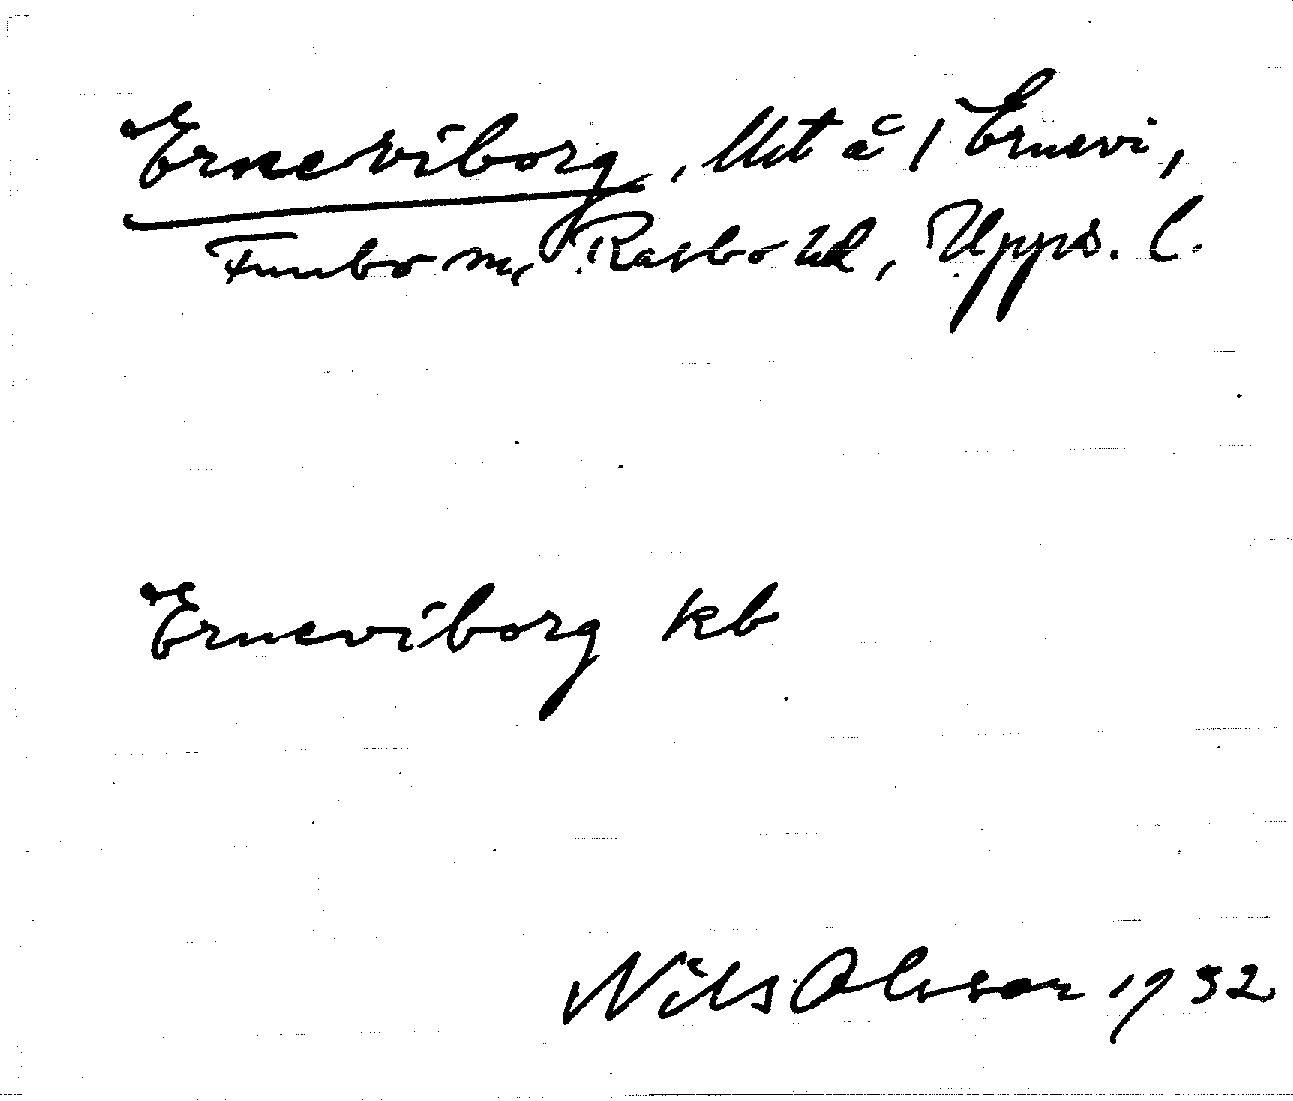 Erneviborg, Ust å 1 Ernevi,
Funbo sn, Rasbo hd, Upps. l.
Erneviborg kb
Nils Olsson 1932